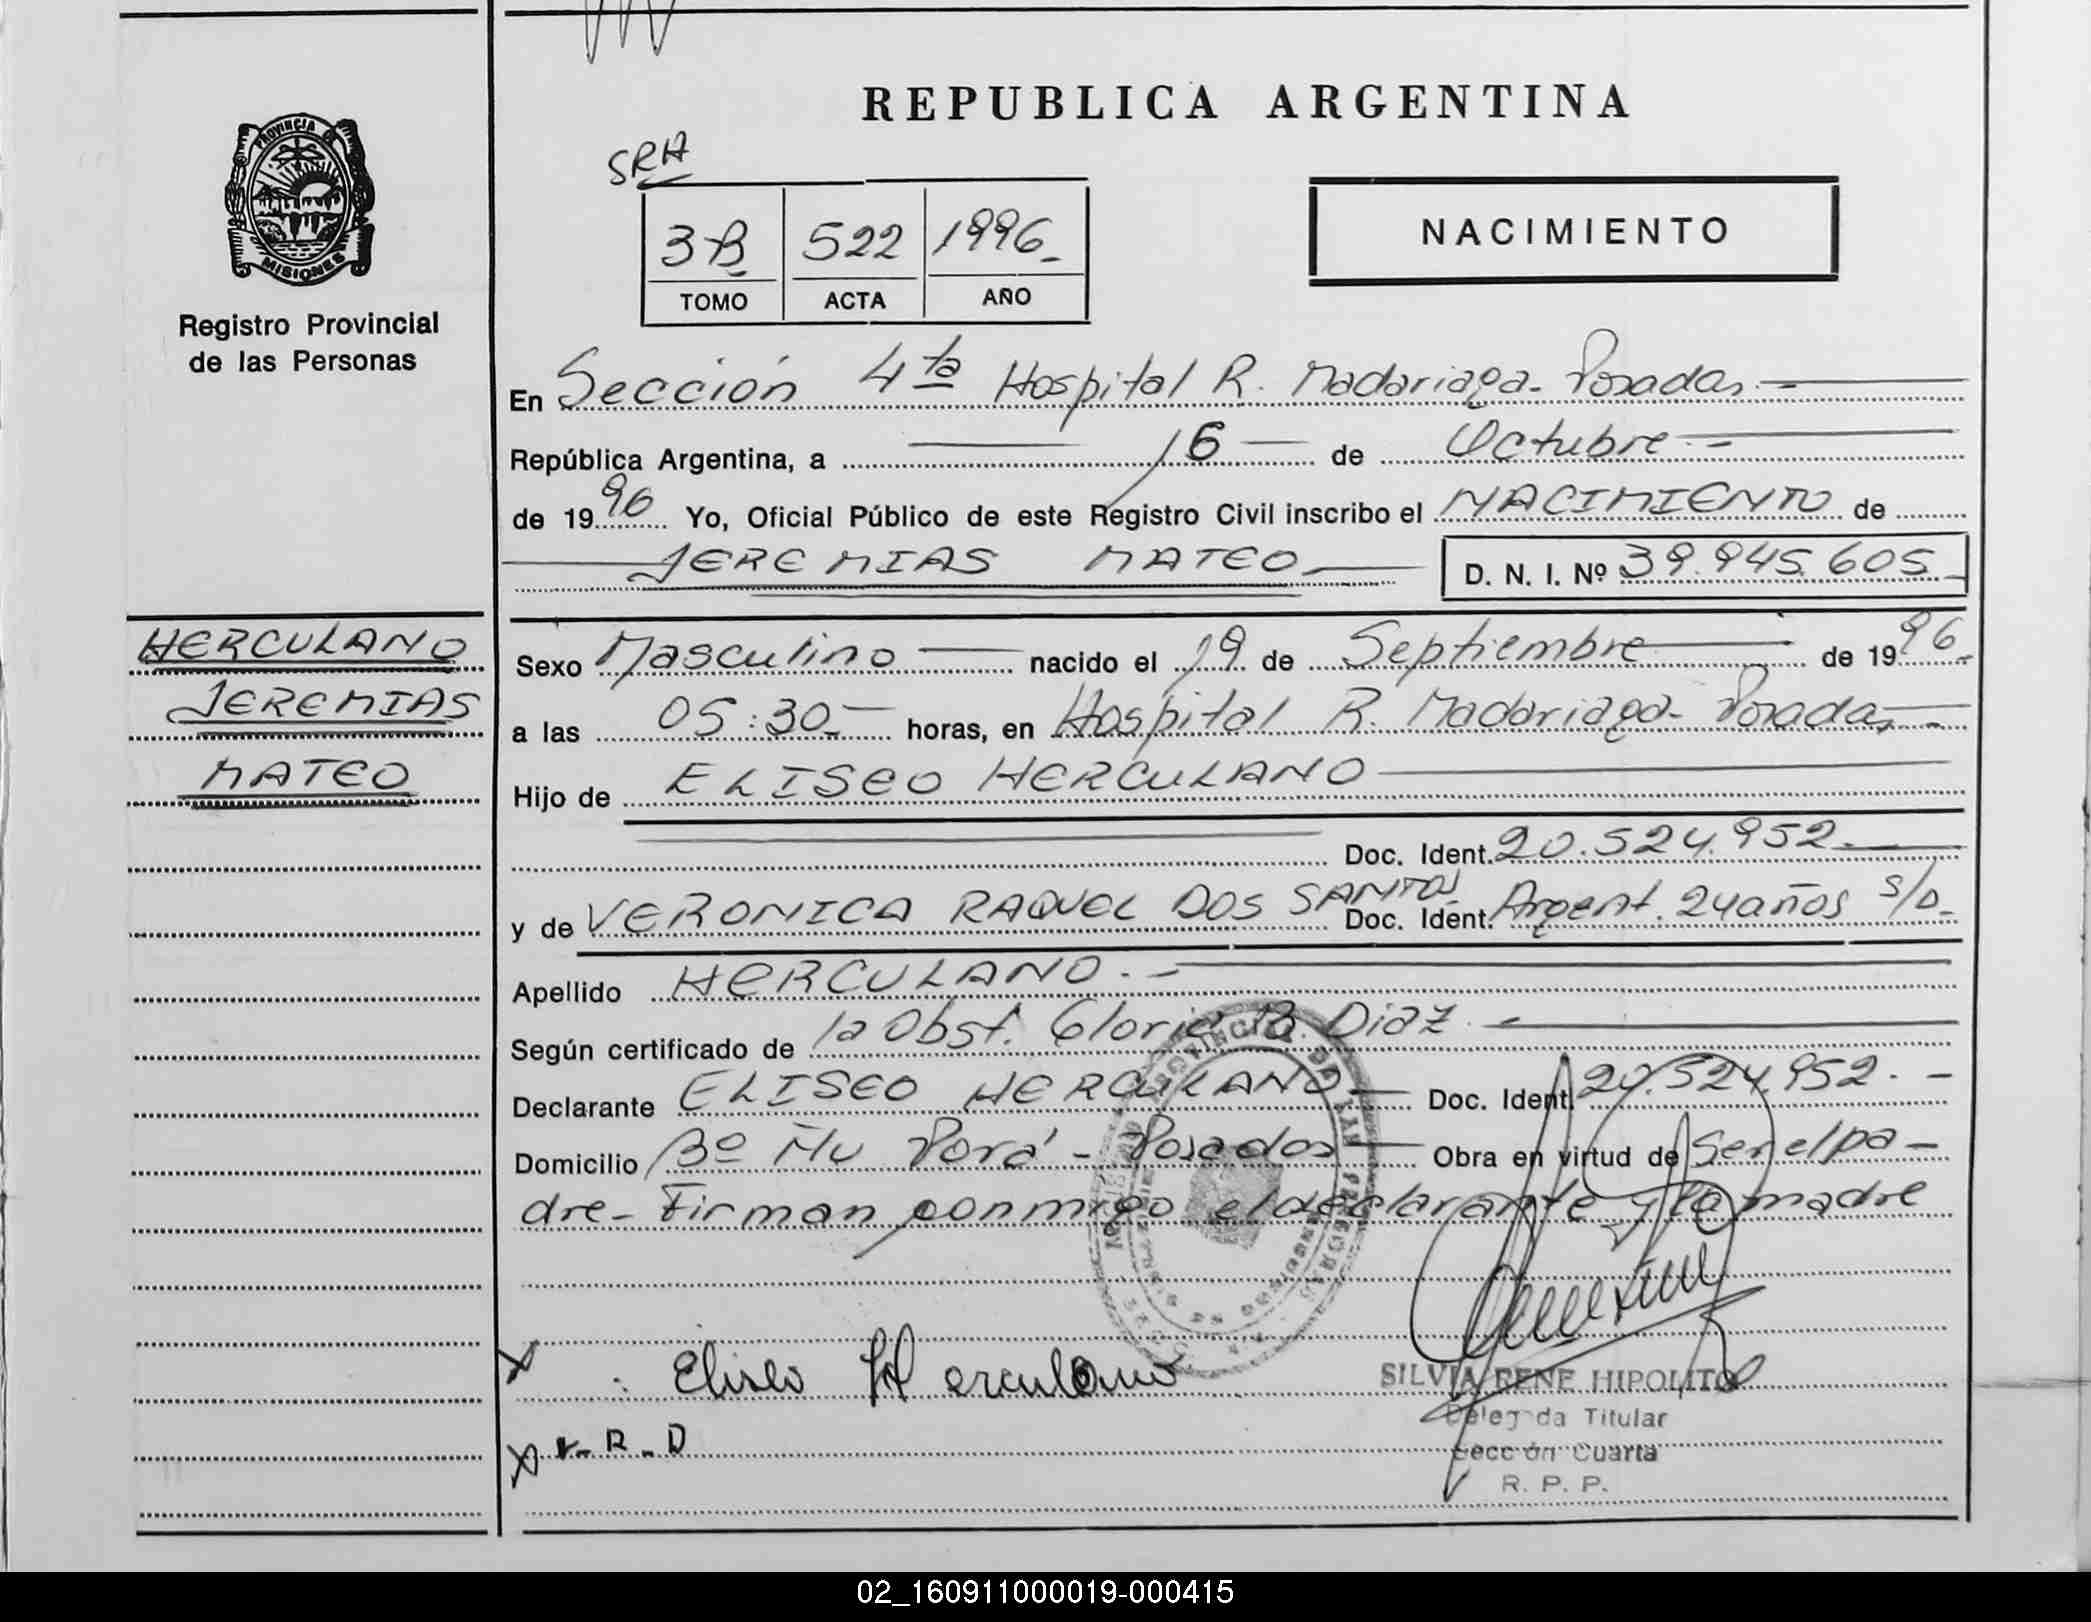 REPUBLICA ARGENTINA
PROVINCIA DE
MISIONES
Registro Provincial
de las Personas
SRA
3-B 522 1996_
TOMO ACTA AÑO
NACIMIENTO
En Sección 4ta Hospital R. Madariaga - Posadas.-
República Argentina, a 16 de Octubre.-
de 1996 Yo, Oficial Público de este Registro Civil inscribo el NACIMIENTO de
JEREMIAS MATEO D. N. I. Nº 39.945.605_
HERCULANO
JEREMIAS
MATEO
Sexo Masculino nacido el 19 de Septiembre de 1996_
a las 05:30.- horas, en Hospital R. Madariaga - Posadas.-
Hijo de ELISEO HERCULANO
Doc. Ident. 20.524.952.
y de VERONICA RAQUEL DOS SANTOS Doc. Ident. Argent. 24 años s/D_
Apellido HERCULANO.-
Según certificado de la Obst. Gloria B. Diaz.-
Declarante ELISEO HERCULANO Doc. Ident. 20.524.952.-
Domicilio Bº Ñu Porá - Posadas Obra en virtud de Ser el pa-
dre - Firman conmigo el declarante y la madre
x Eliseo Herculano
SILVIA RENE HIPOLITO
Delegada Titular
Sección Cuarta
R. P. P.
x V_R_D
02_160911000019-000415